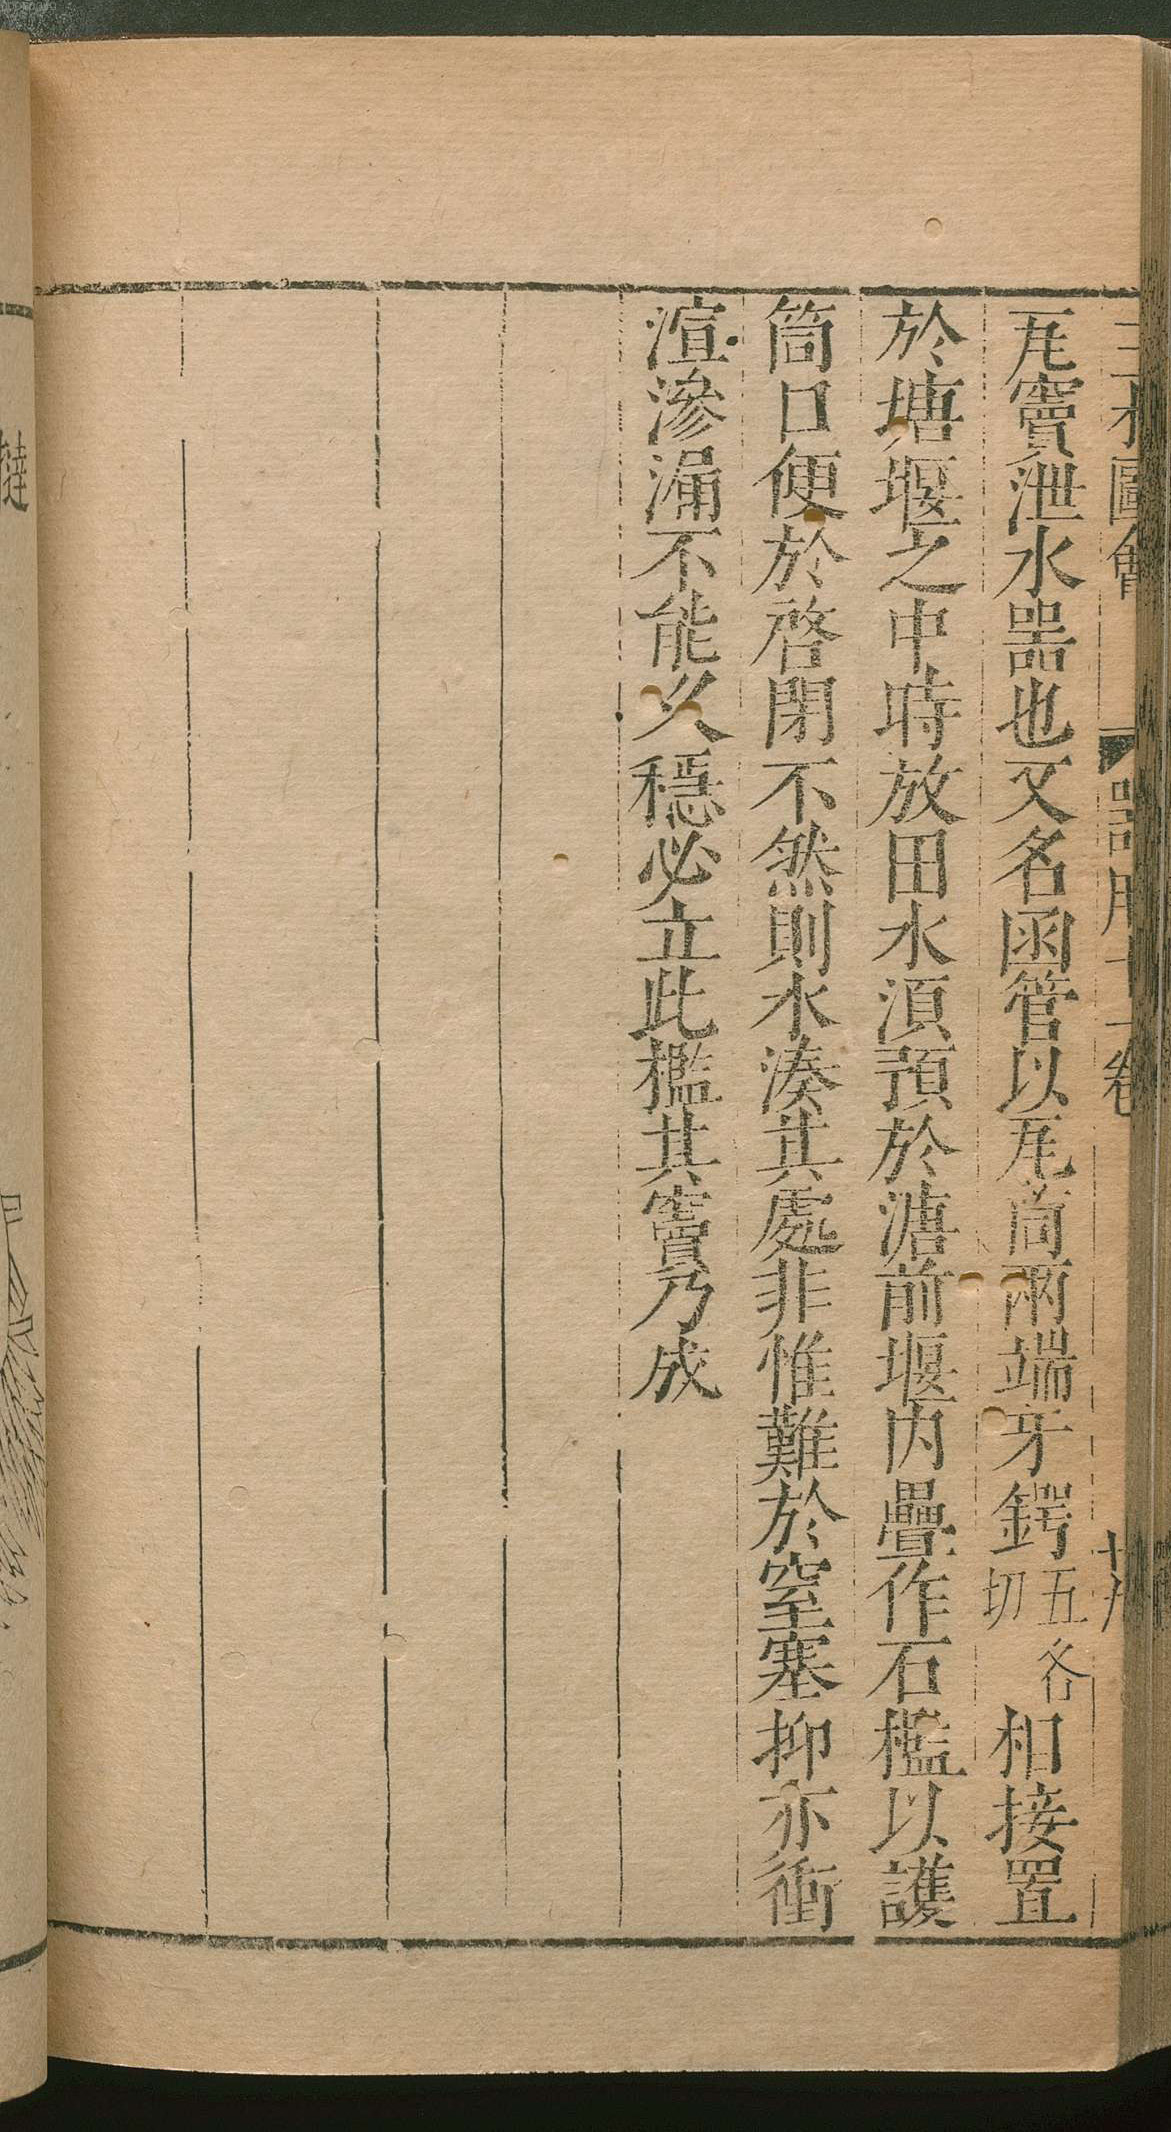 三才圖會 器用十一卷 十九
瓦竇泄水器也又名函管以瓦筒兩端牙鍔五各切相接置
於塘堰之中時放田水湏預於溏前堰内疊作石檻以護
筒口便於啓閉不然則水湊其處非惟難於窒塞抑亦衝
渲滲漏不能久穩必立此檻其竇乃成
撻